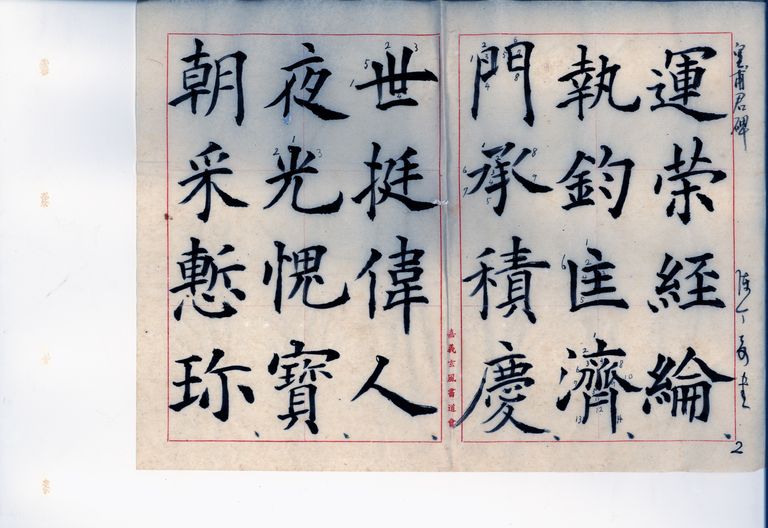 皇甫君碑 陳丁奇書
2
運榮經綸
執鈞匡濟
門承積慶
嘉義玄風書道會
世挺偉人
夜光愧寶
朝采慙珎